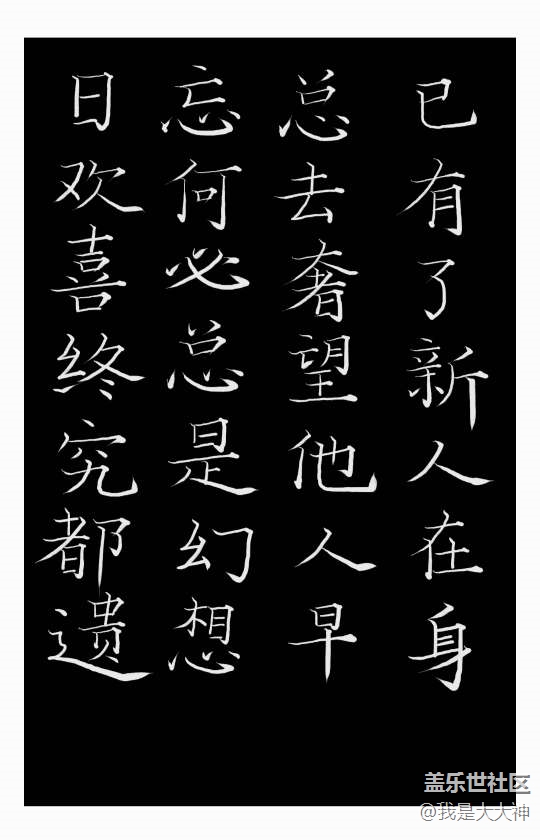 已有了新人在身
总去奢望他人早
忘何必总是幻想
日欢喜终究都遗
盖乐世社区
@我是大大神